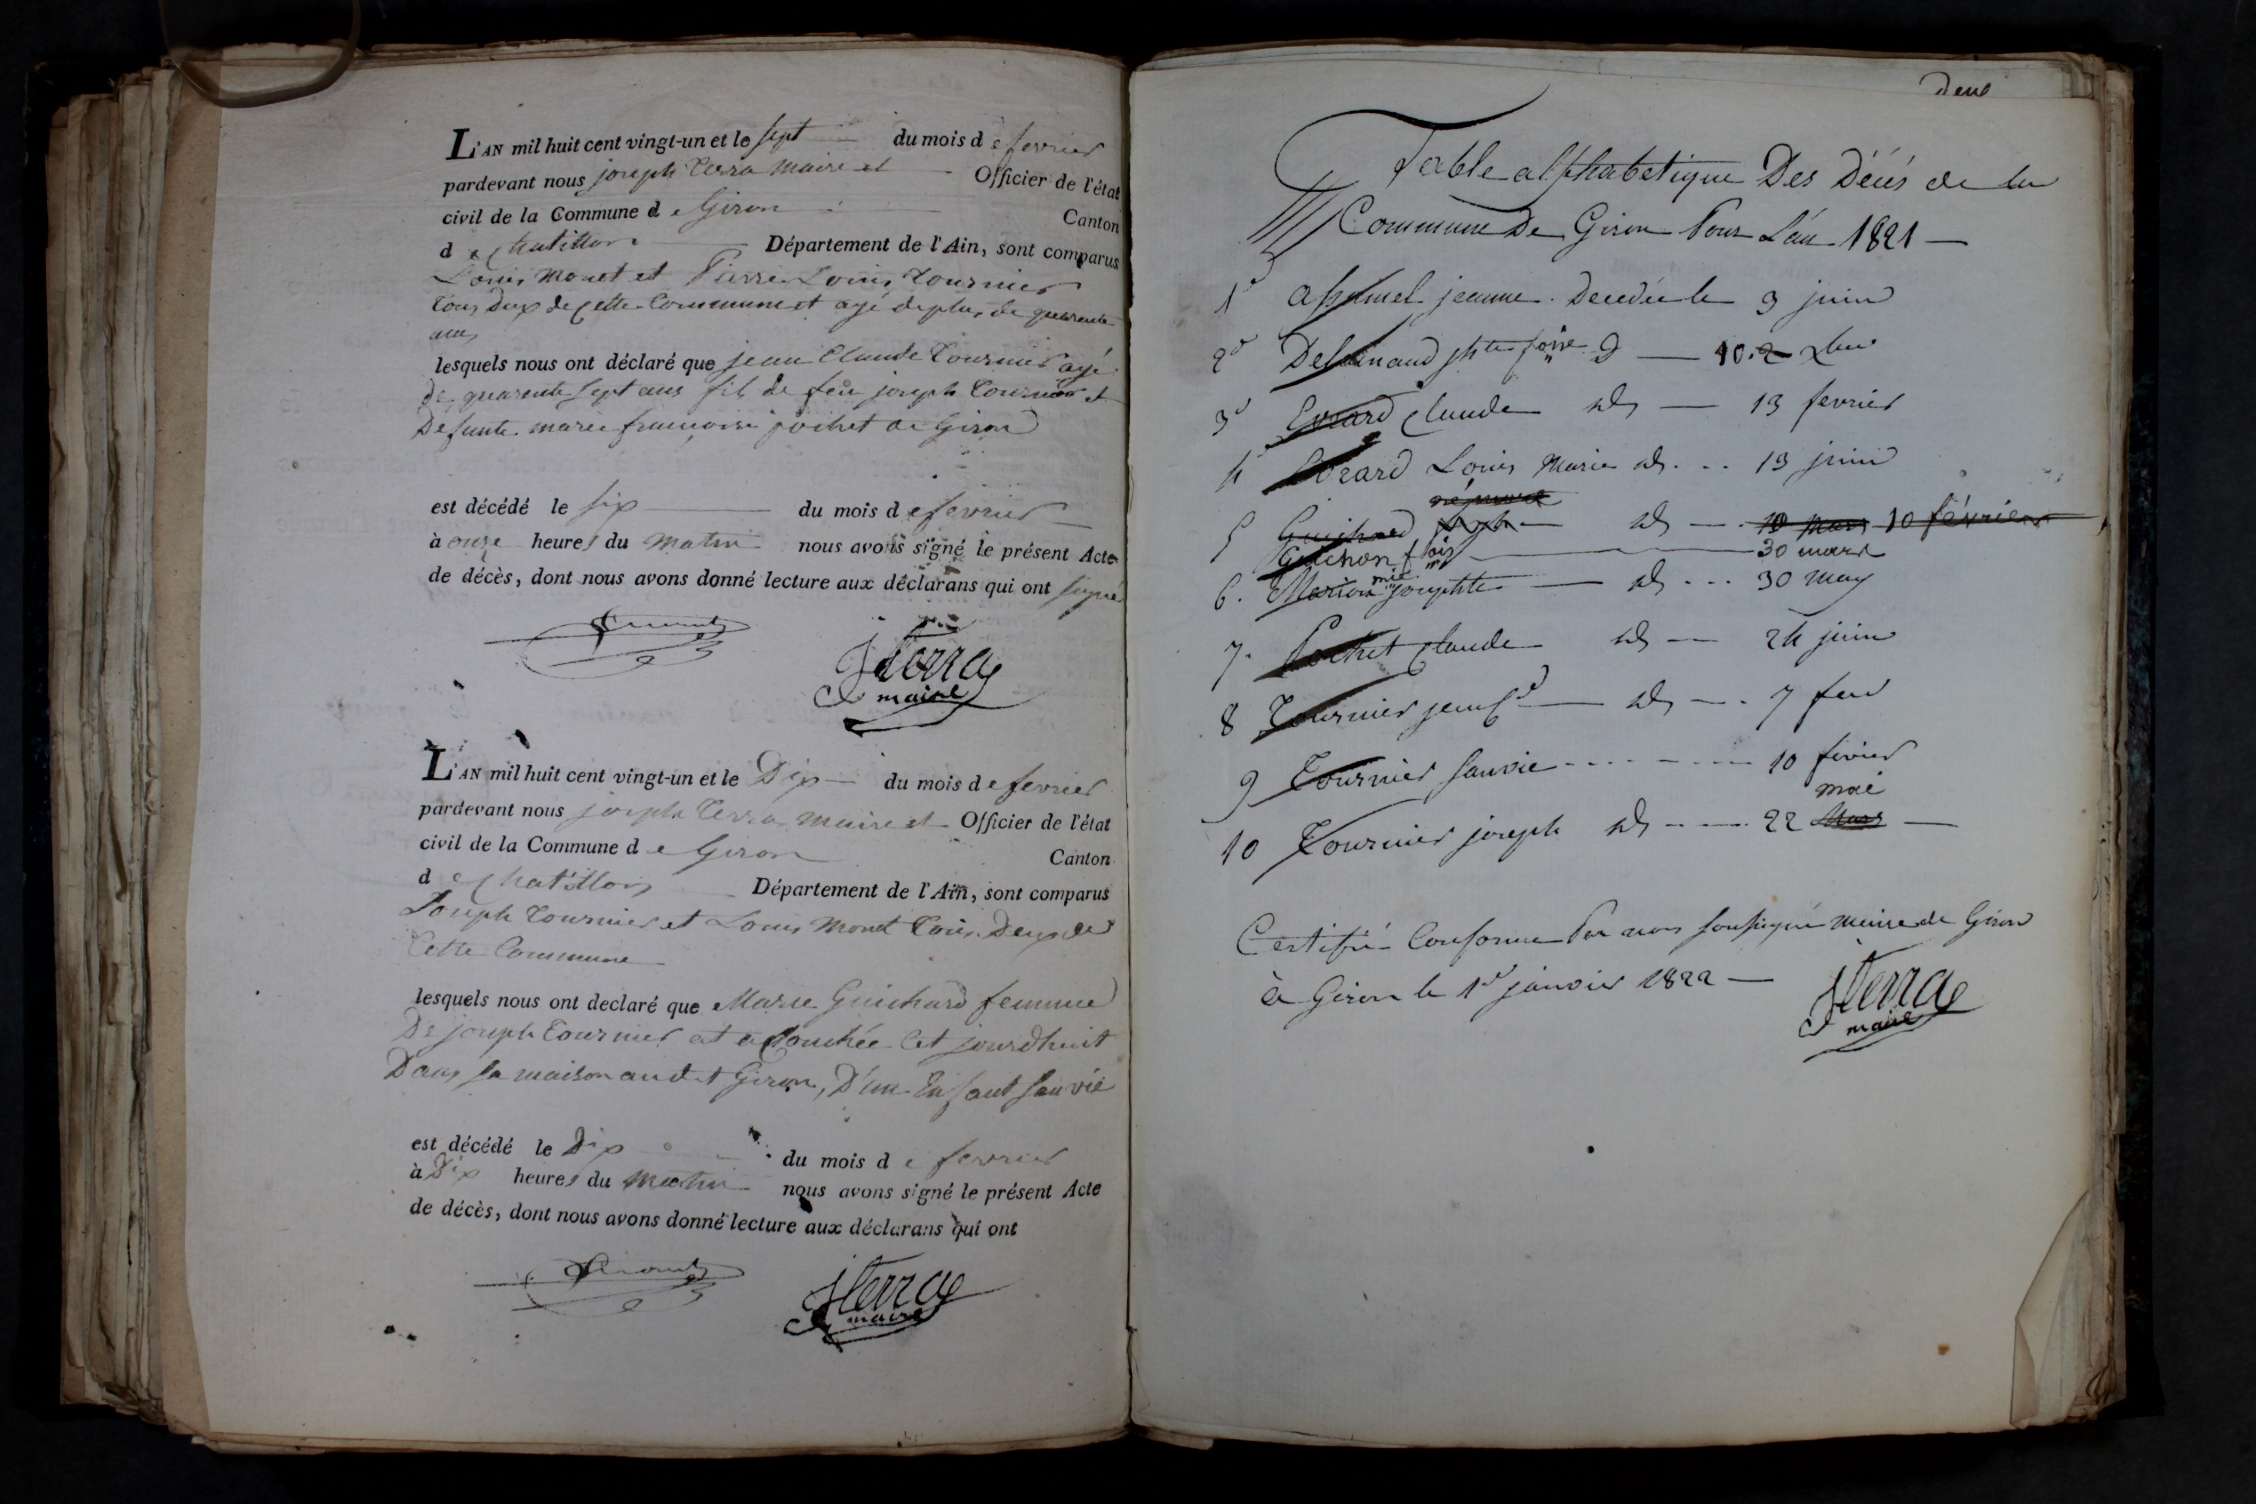 L'AN mil huit cent vingt-un et le sept du mois de fevrier
pardevant nous joseph Terra maire et Officier de l'état
civil de la Commune de Giron Canton
de Chatillon Département de l'Ain, sont comparus
Louis Monet et Pierre Louis Tournier
tous deux de cette Commune et agé de plus de quarente
ans
lesquels nous ont déclaré que jean Claude Tournier agé
De quarente sept ans fil de feu joseph Tournier et
Defunte marie francoise pochet de Giron
est décédé le six du mois de fevrier
à onze heures du matin nous avons signé le présent Acte
de décès, dont nous avons donné lecture aux déclarans qui ont signé
JTerra
maire
L'AN mil huit cent vingt-un et le Dix du mois de fevrier
pardevant nous joseph Terra maire et Officier de l'état
civil de la Commune de Giron Canton
de Chatillon Département de l'Ain, sont comparus
Joseph Tournier et Louis Monet Tous Deux de
Cette Commune
lesquels nous ont declaré que Marie Guichard femme
De joseph Tournier at acouchée Cet jourdhuit
Dans sa maison audit Giron, D'un Enfant san vie
est décédé le Dix du mois de fevrier
à Dix heures du matin nous avons signé le présent Acte
de décès, dont nous avons donné lecture aux déclarans qui ont
JTerra
maire
Table alphabetique Des Décés de la
Commune De Giron Pour L'an 1821
1° jeanne Decedée le 9 juin
2° 10
3° Evrard Claude id 13 fevrier
4 Evrard Louis Marie id 13 juin
5 Guichard id 10 mars 10 février
Guichon fois 30 mars
6. Marion mie josephte id 30 may
7. Pochet Claude id 24 juin
8 Tournier jean Cde id 7 fev
9 Tournier sanvie 10 fevrier
mai
10 Tournier joseph id 22 Mars
Certifié Conforme Par nous soussigné maire de Giron
à Giron le 1er janvier 1822
JTerra
maire